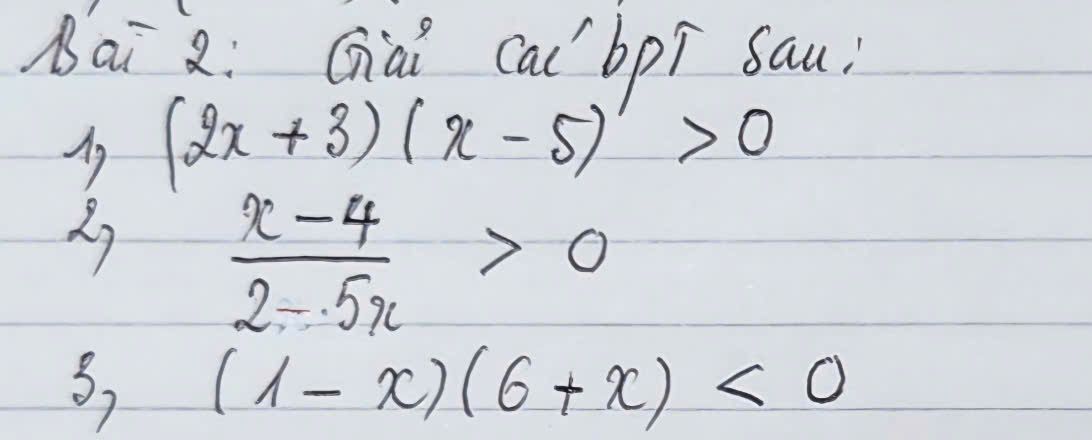 Bài 2: Giải các bpT sau:
1, (2x + 3)(x - 5) > 0
2, \frac{x - 4}{2 - 5x} > 0
3, (1 - x)(6 + x) < 0